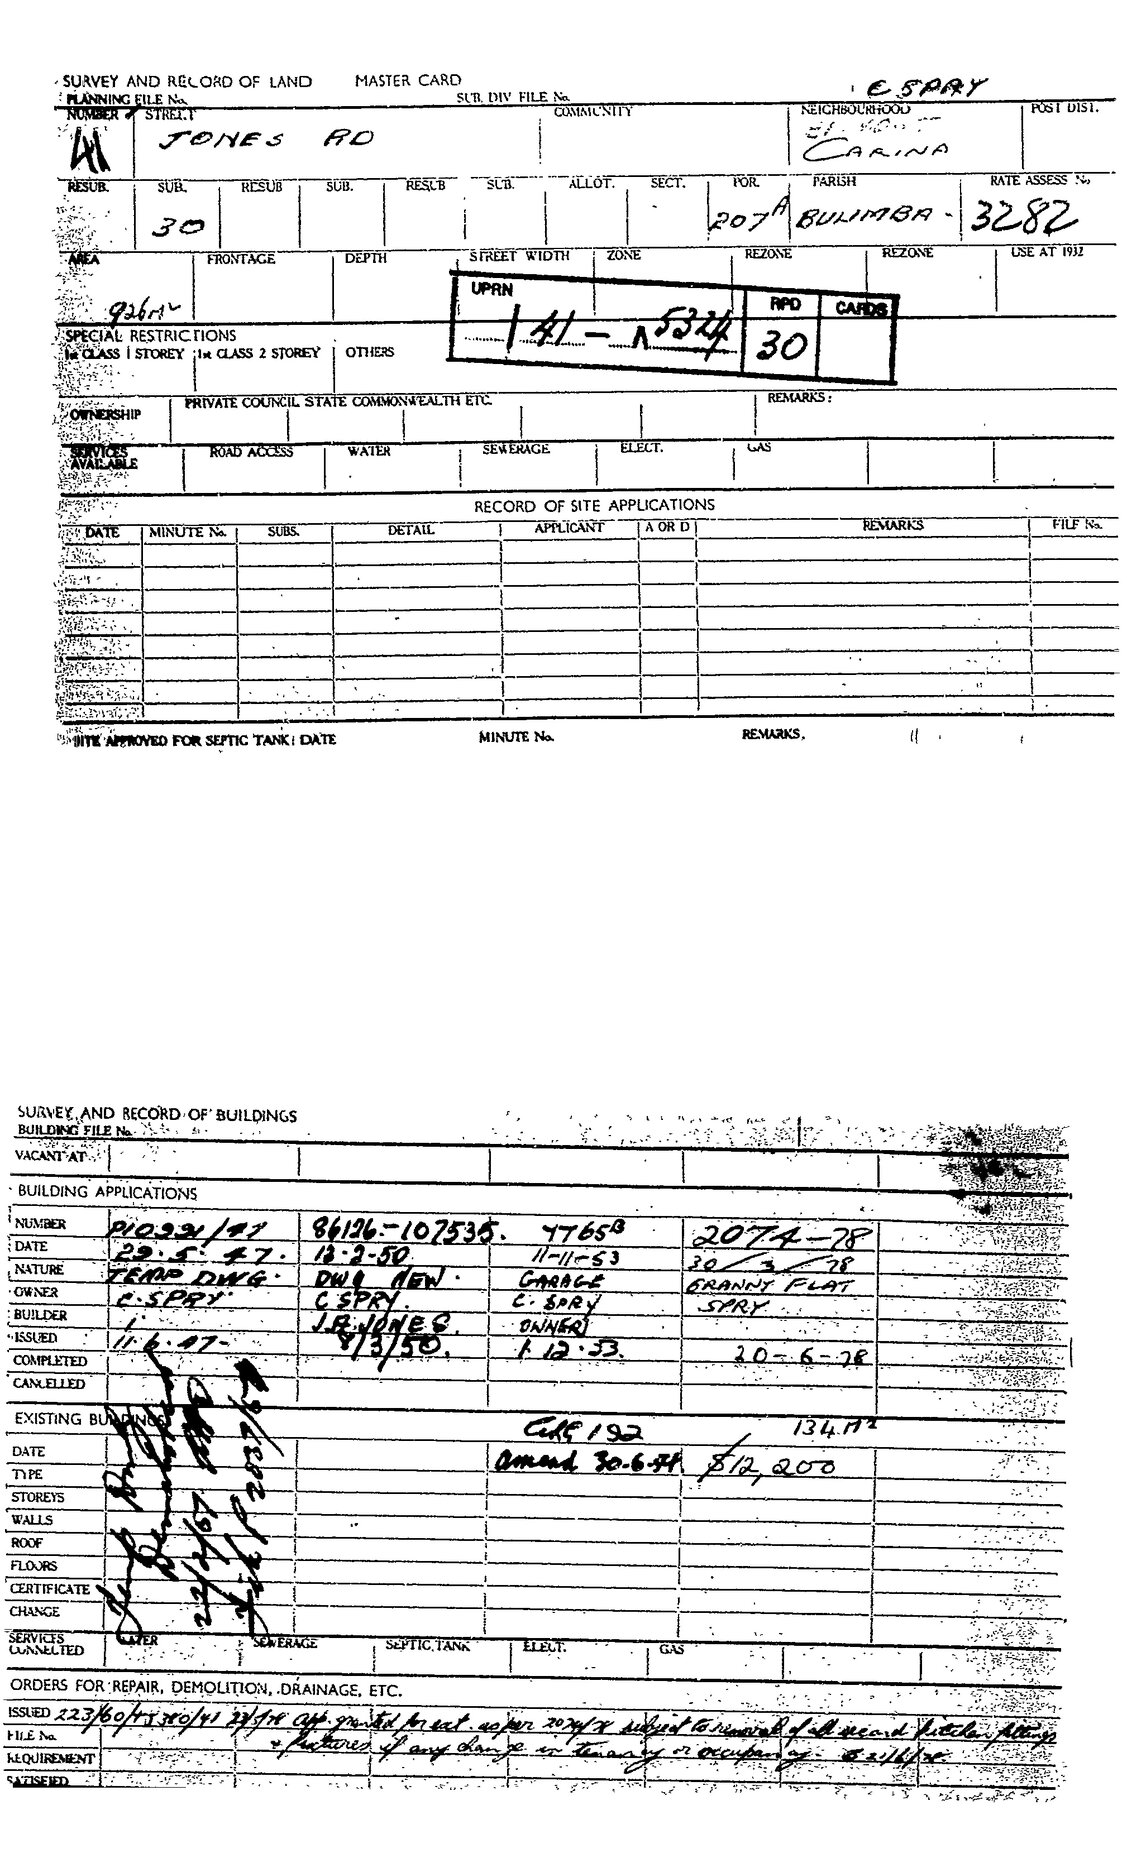 SURVEY AND RECORD OF LAND MASTER CARD
C SPRY
PLANNING FILE No. SUB. DIV FILE No.
NUMBER STREET COMMUNITY NEIGHBOURHOOD POST DIST.
41 JONES RD CARINA
RESUB. SUB. RESUB SUB. RESUB SUB. ALLOT. SECT. POR. PARISH RATE ASSESS No.
30 207A BULIMBA - 3282
AREA FRONTAGE DEPTH STREET WIDTH ZONE REZONE REZONE USE AT 1932
926 m2
UPRN RPD CARDS
141 - A 5324 30
SPECIAL RESTRICTIONS
1st CLASS 1 STOREY 1st CLASS 2 STOREY OTHERS
OWNERSHIP PRIVATE COUNCIL STATE COMMONWEALTH ETC. REMARKS:
SERVICES AVAILABLE ROAD ACCESS WATER SEWERAGE ELECT. GAS
RECORD OF SITE APPLICATIONS
DATE MINUTE No. SUBS. DETAIL APPLICANT A OR D REMARKS FILE No.
SITE APPROVED FOR SEPTIC TANK: DATE MINUTE No. REMARKS.
SURVEY AND RECORD OF BUILDINGS
BUILDING FILE No.
VACANT AT
BUILDING APPLICATIONS
NUMBER 86126-107535. 7765B 2074-78
DATE 29.5.47. 13-2-50 11-11-53 30/3/78
NATURE TEMP DWG. DWG NEW. GARAGE GRANNY FLAT
OWNER C. SPRY C SPRY. C. SPRY SPRY
BUILDER J.A. JONES. OWNER
ISSUED 11.6.47- 8/3/50. 1.12.53. 20-6-78
COMPLETED
CANCELLED
EXISTING BUILDINGS 192 134 M2
DATE amend $12,200
TYPE
STOREYS
WALLS
ROOF
FLOORS
CERTIFICATE
CHANGE
Temp Dwg
Demolished
22/2/67
SERVICES CONNECTED WATER SEWERAGE SEPTIC TANK ELECT. GAS
ORDERS FOR REPAIR, DEMOLITION, DRAINAGE, ETC.
ISSUED app. granted for ext. as per 2074/78 subject to removal of all second kitchen fittings
FILE No. + fixtures if any change in tenancy or occupancy.
REQUIREMENT
SATISFIED